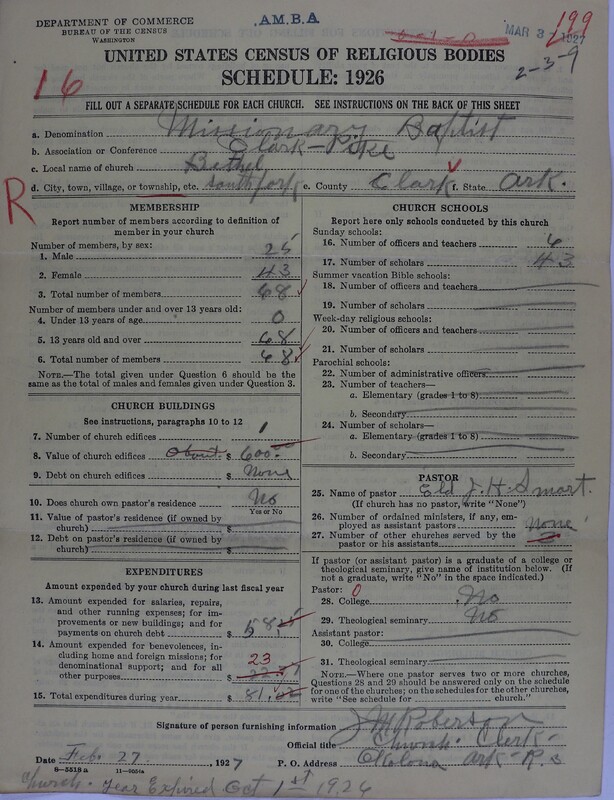 DEPARTMENT OF COMMERCE
BUREAU OF THE CENSUS
WASHINGTON
A.M.B.A
MAR 3 1927
199
2-3-9
UNITED STATES CENSUS OF RELIGIOUS BODIES
SCHEDULE: 1926
16
FILL OUT A SEPARATE SCHEDULE FOR EACH CHURCH. SEE INSTRUCTIONS ON THE BACK OF THIS SHEET
a. Denomination Missionary Baptist
b. Association or Conference Clark-Pike
c. Local name of church Bethel
d. City, town, village, or township, etc. South fork e. County Clark f. State Ark.
R
MEMBERSHIP
Report number of members according to definition of
member in your church
Number of members, by sex:
1. Male 25
2. Female 43
3. Total number of members 68
Number of members under and over 13 years old:
4. Under 13 years of age 0
5. 13 years old and over 68
6. Total number of members 68
NOTE.—The total given under Question 6 should be
the same as the total of males and females given under Question 3.
CHURCH BUILDINGS
See instructions, paragraphs 10 to 12
7. Number of church edifices 1
8. Value of church edifices About $ 600
9. Debt on church edifices $ None
10. Does church own pastor's residence? No
Yes or No
11. Value of pastor's residence (if owned by
church) $
12. Debt on pastor's residence (if owned by
church) $
EXPENDITURES
Amount expended by your church during last fiscal year
13. Amount expended for salaries, repairs,
and other running expenses; for im-
provements or new buildings; and for
payments on church debt $ 58
14. Amount expended for benevolences,
including home and foreign missions; for
denominational support; and for all
other purposes $ 23
15. Total expenditures during year $ 81
CHURCH SCHOOLS
Report here only schools conducted by this church
Sunday schools:
16. Number of officers and teachers 6
17. Number of scholars 43
Summer vacation Bible schools:
18. Number of officers and teachers
19. Number of scholars
Week-day religious schools:
20. Number of officers and teachers
21. Number of scholars
Parochial schools:
22. Number of administrative officers
23. Number of teachers—
a. Elementary (grades 1 to 8)
b. Secondary
24. Number of scholars—
a. Elementary (grades 1 to 8)
b. Secondary
PASTOR
25. Name of pastor Eld J. H. Smart.
(If church has no pastor, write "None")
26. Number of ordained ministers, if any, em-
ployed as assistant pastors None
27. Number of other churches served by the
pastor or his assistants
If pastor (or assistant pastor) is a graduate of a college or
theological seminary, give name of institution below. (If
not a graduate, write "No" in the space indicated.)
Pastor: 0
28. College No
29. Theological seminary No
Assistant pastor:
30. College
31. Theological seminary
NOTE.—Where one pastor serves two or more churches,
Questions 28 and 29 should be answered only on the schedule
for one of the churches; on the schedules for the other churches,
write "See schedule for church."
Signature of person furnishing information J H Roberson
Official title Church Clerk
Date Feb. 27, 1927 P. O. Address Okolona Ark
8—5518 a
Church Year Expired Oct 1st 1926